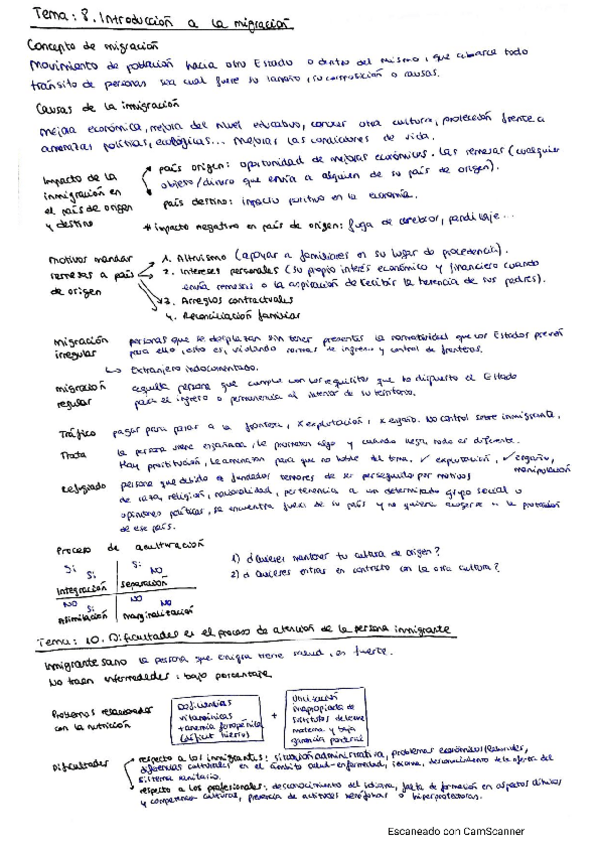 Tema: 8. Introducción a la migración
Concepto de migración
Movimiento de población hacia otro Estado o dentro del mismo, que abarca todo
tránsito de personas sea cual fuere su tamaño, su composición o causas.
Causas de la inmigración
Mejora económica, mejora del nivel educativo, conocer otra cultura, protección frente a
amenazas políticas, ecológicas... Mejorar las condiciones de vida.
Impacto de la inmigración en el país de origen y destino
país origen: oportunidad de mejoras económicas. Las remesas (cualquier
objeto/dinero que envía a alguien de su país de origen).
país destino: impacto positivo en la economía.
* impacto negativo en país de origen: fuga de cerebros, pandillaje...
Motivos mandar remesas a país de origen
1. Altruismo (apoyar a familiares en su lugar de procedencia).
2. Intereses personales (su propio interés económico y financiero cuando
envía remesas o la aspiración de recibir la herencia de sus padres).
3. Arreglos contractuales
4. Reconciliación familiar
Migración irregular
personas que se desplazan sin tener presentes la normatividad que los Estados prevén
para ello, esto es, violando normas de ingreso y control de fronteras.
↳ Extranjero indocumentado.
Migración regular
aquella persona que cumple con los requisitos que ha dispuesto el Estado
para el ingreso o permanencia al interior de su territorio.
Tráfico pagar para pasar a la frontera, X explotación, X engaño. No control sobre inmigrante.
Trata la persona viene engañada, le prometen algo y cuando llega, todo es diferente.
Hay prostitución, le amenazan para que no hable del tema. ✓ explotación, ✓ engaño,
manipulación
Refugiado persona que debido a fundados temores de ser perseguido por motivos
de raza, religión, nacionalidad, pertenencia a un determinado grupo social u
opiniones políticas, se encuentra fuera de su país y no quiere acogerse a la protección
de ese país.
Proceso de aculturación
1) ¿Quieres mantener tu cultura de origen?
2) ¿Quieres entrar en contacto con la otra cultura?
Si Si Integración
Si NO Separación
NO Si Asimilación
NO NO Marginalización
Tema: 10. Dificultades en el proceso de atención de la persona inmigrante
Inmigrante sano la persona que emigra tiene salud, es fuerte.
No traen enfermedades: bajo porcentaje
Problemas relacionados con la nutrición
Deficiencias
vitamínicas
+ anemia ferropénica
(déficit hierro)
+
Utilización
inapropiada de
sustitutos de leche
materna y baja
ganancia ponderal
Dificultades
respecto a los inmigrantes: situación administrativa, problemas económicos/laborales,
diferencias culturales en el ámbito salud-enfermedad, idioma, desconocimiento de la oferta del
sistema sanitario.
respecto a los profesionales: desconocimiento del idioma, falta de formación en aspectos clínicos
y competencias culturales, presencia de actitudes xenófobas o hiperprotectoras.
Escaneado con CamScanner